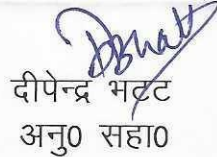 DBhatt
दीपेन्द्र भटट
अनु0 सहा0